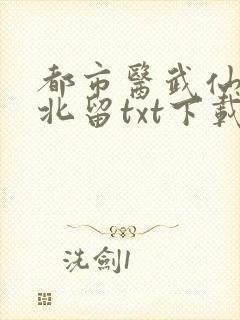 都市醫武仙
北留txt下載
洗劍1